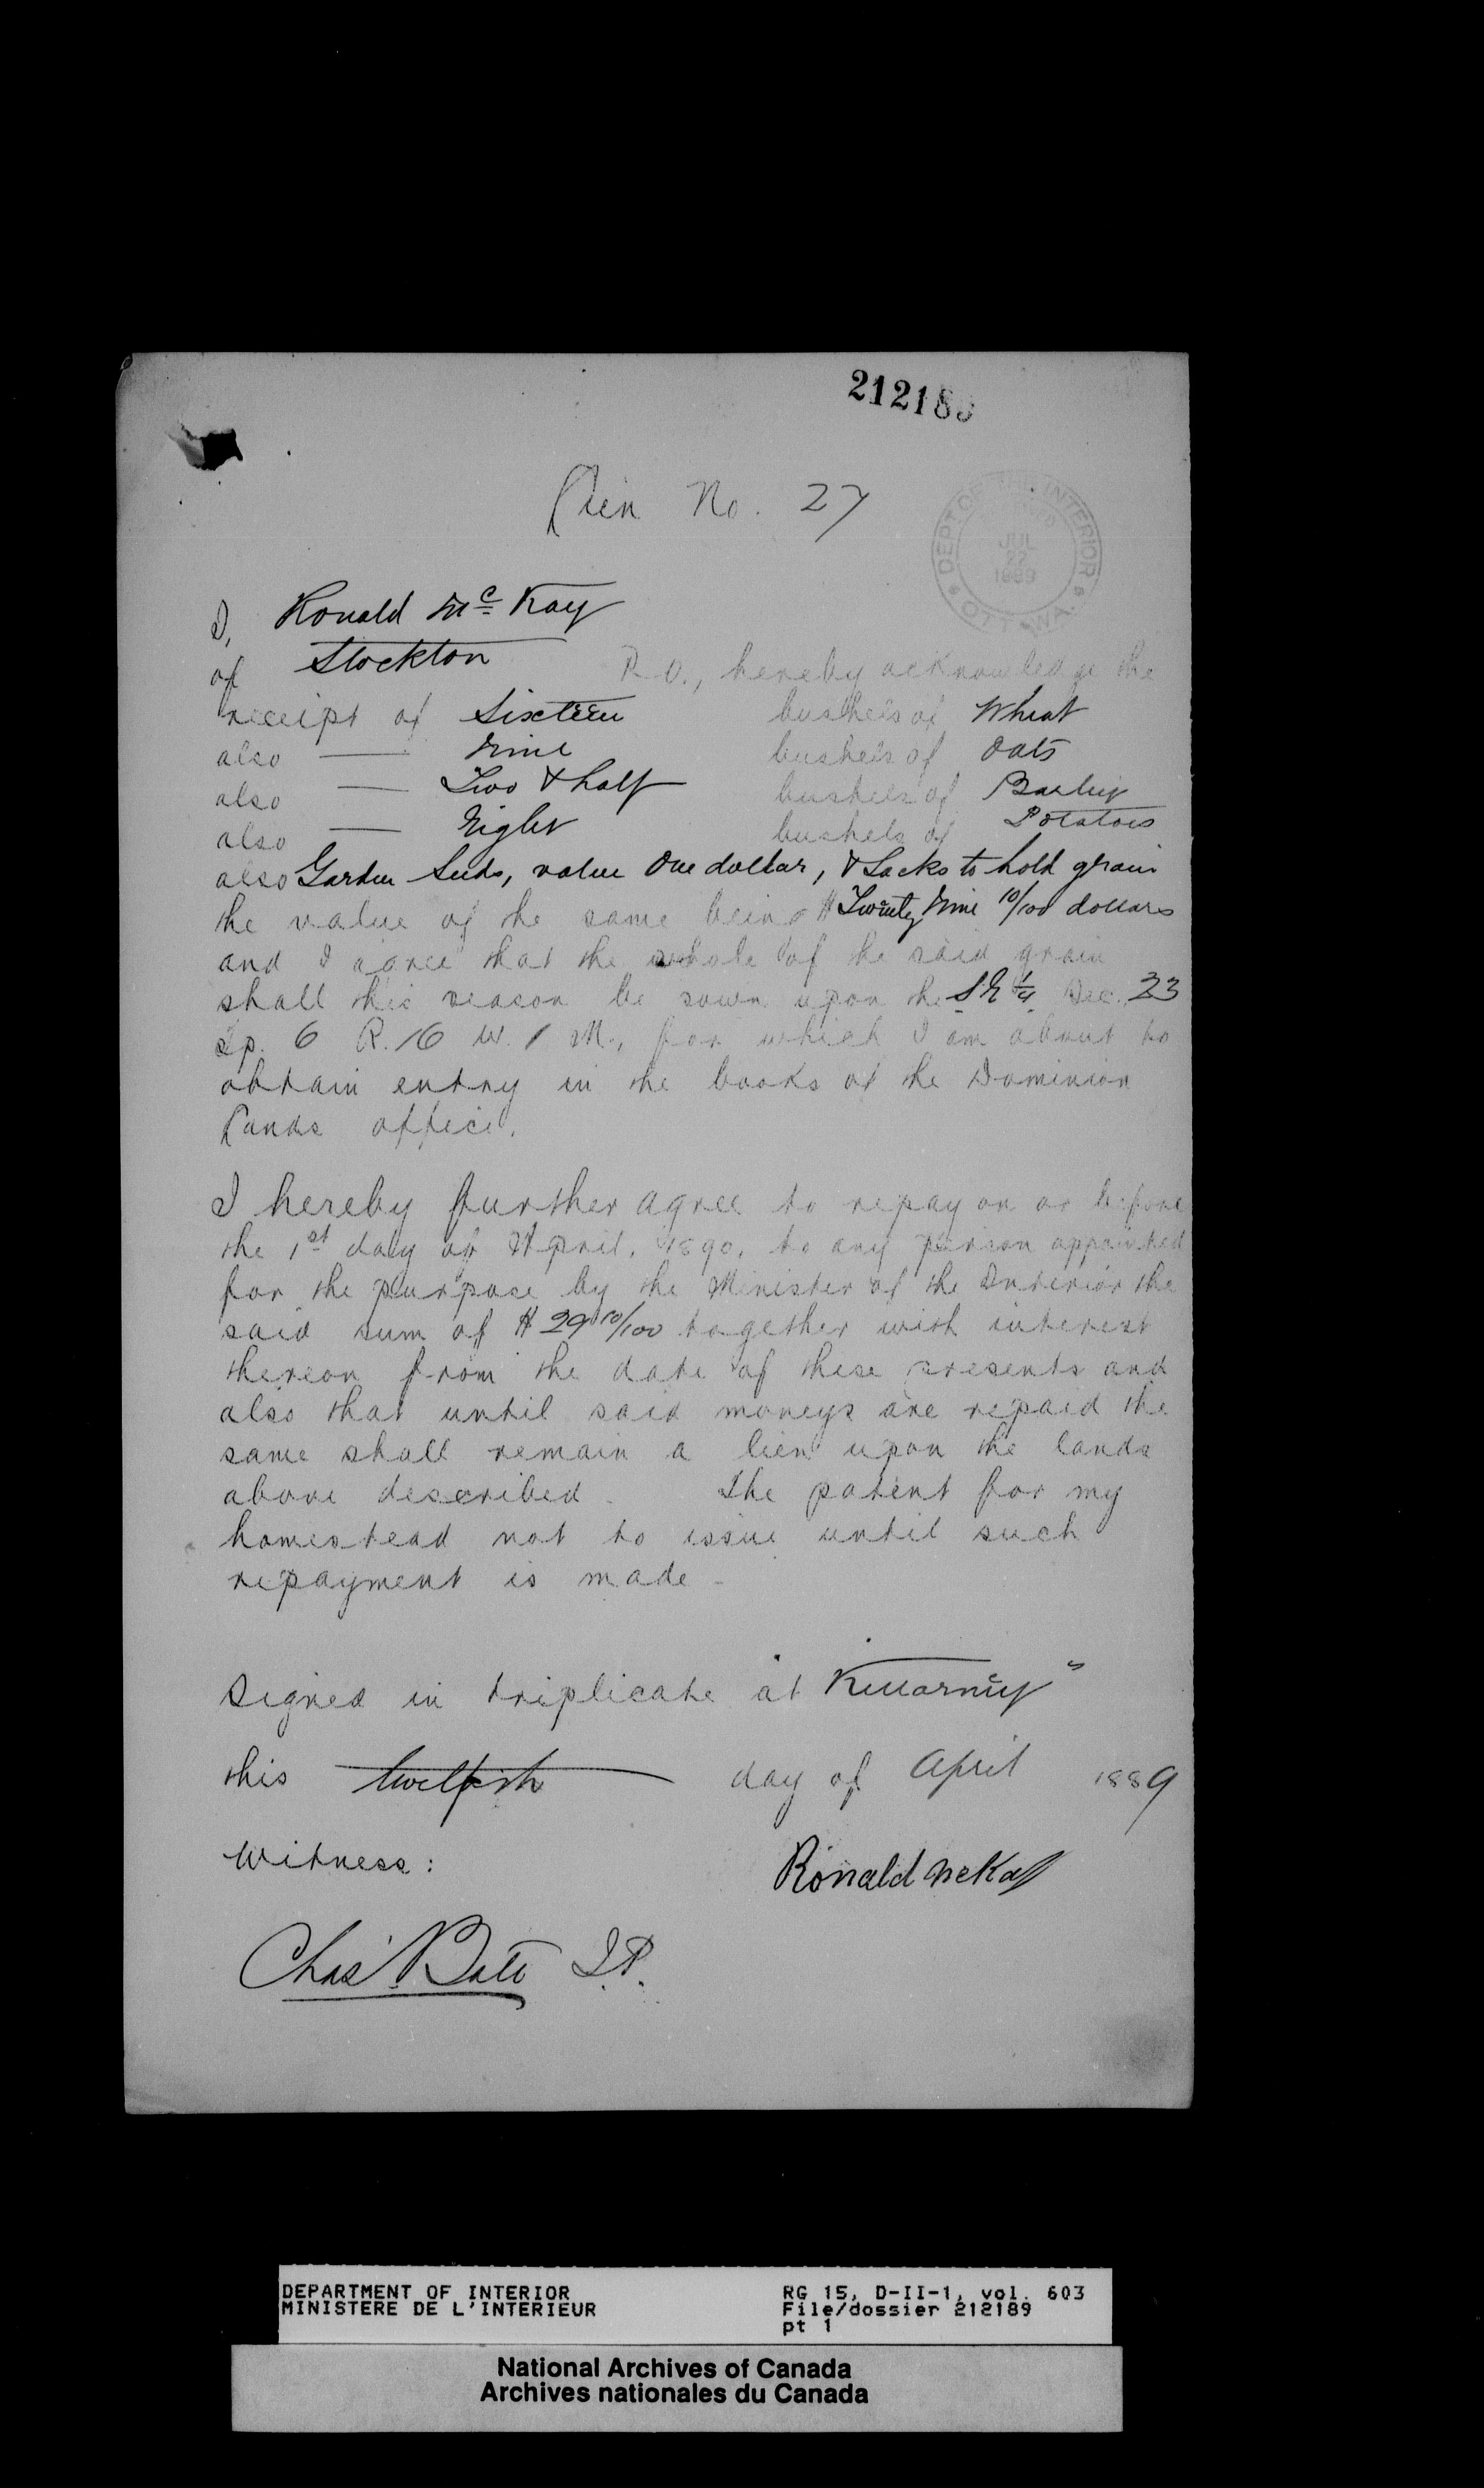 212189
Lien No. 27
DEPT OF THE INTERIOR
JUL
22
1889
OTTAWA
I, Ronald McKay
of Stockton P.O., hereby acknowledge the
receipt of Sixteen bushels of Wheat
also — Nine bushels of Oats
also — Two & half bushels of Barley
also — Eight bushels of Potatoes
also Garden Seeds, value One dollar, & Sacks to hold grain
the value of the same being $ Twenty Nine 10/100 dollars
and I agree that the whole of the said grain
shall this season be sown upon the S E 1/4 Sec. 23
Tp. 6 R. 16 W. 1 M., for which I am about to
obtain entry in the books of the Dominion
Lands office.
I hereby further agree to repay on or before
the 1st day of April, 1890, to any person appointed
for the purpose by the Minister of the Interior the
said sum of $ 29 10/100 together with interest
thereon from the date of these presents and
also that until said moneys are repaid the
same shall remain a lien upon the lands
above described. The patent for my
homestead not to issue until such
repayment is made -
Signed in triplicate at Killarney
this twelfth day of April 1889
Witness:
Ronald McKay
Chas Bate J.P.
DEPARTMENT OF INTERIOR RG 15, D-II-1, vol. 603
MINISTERE DE L'INTERIEUR File/dossier 212189
pt 1
National Archives of Canada
Archives nationales du Canada